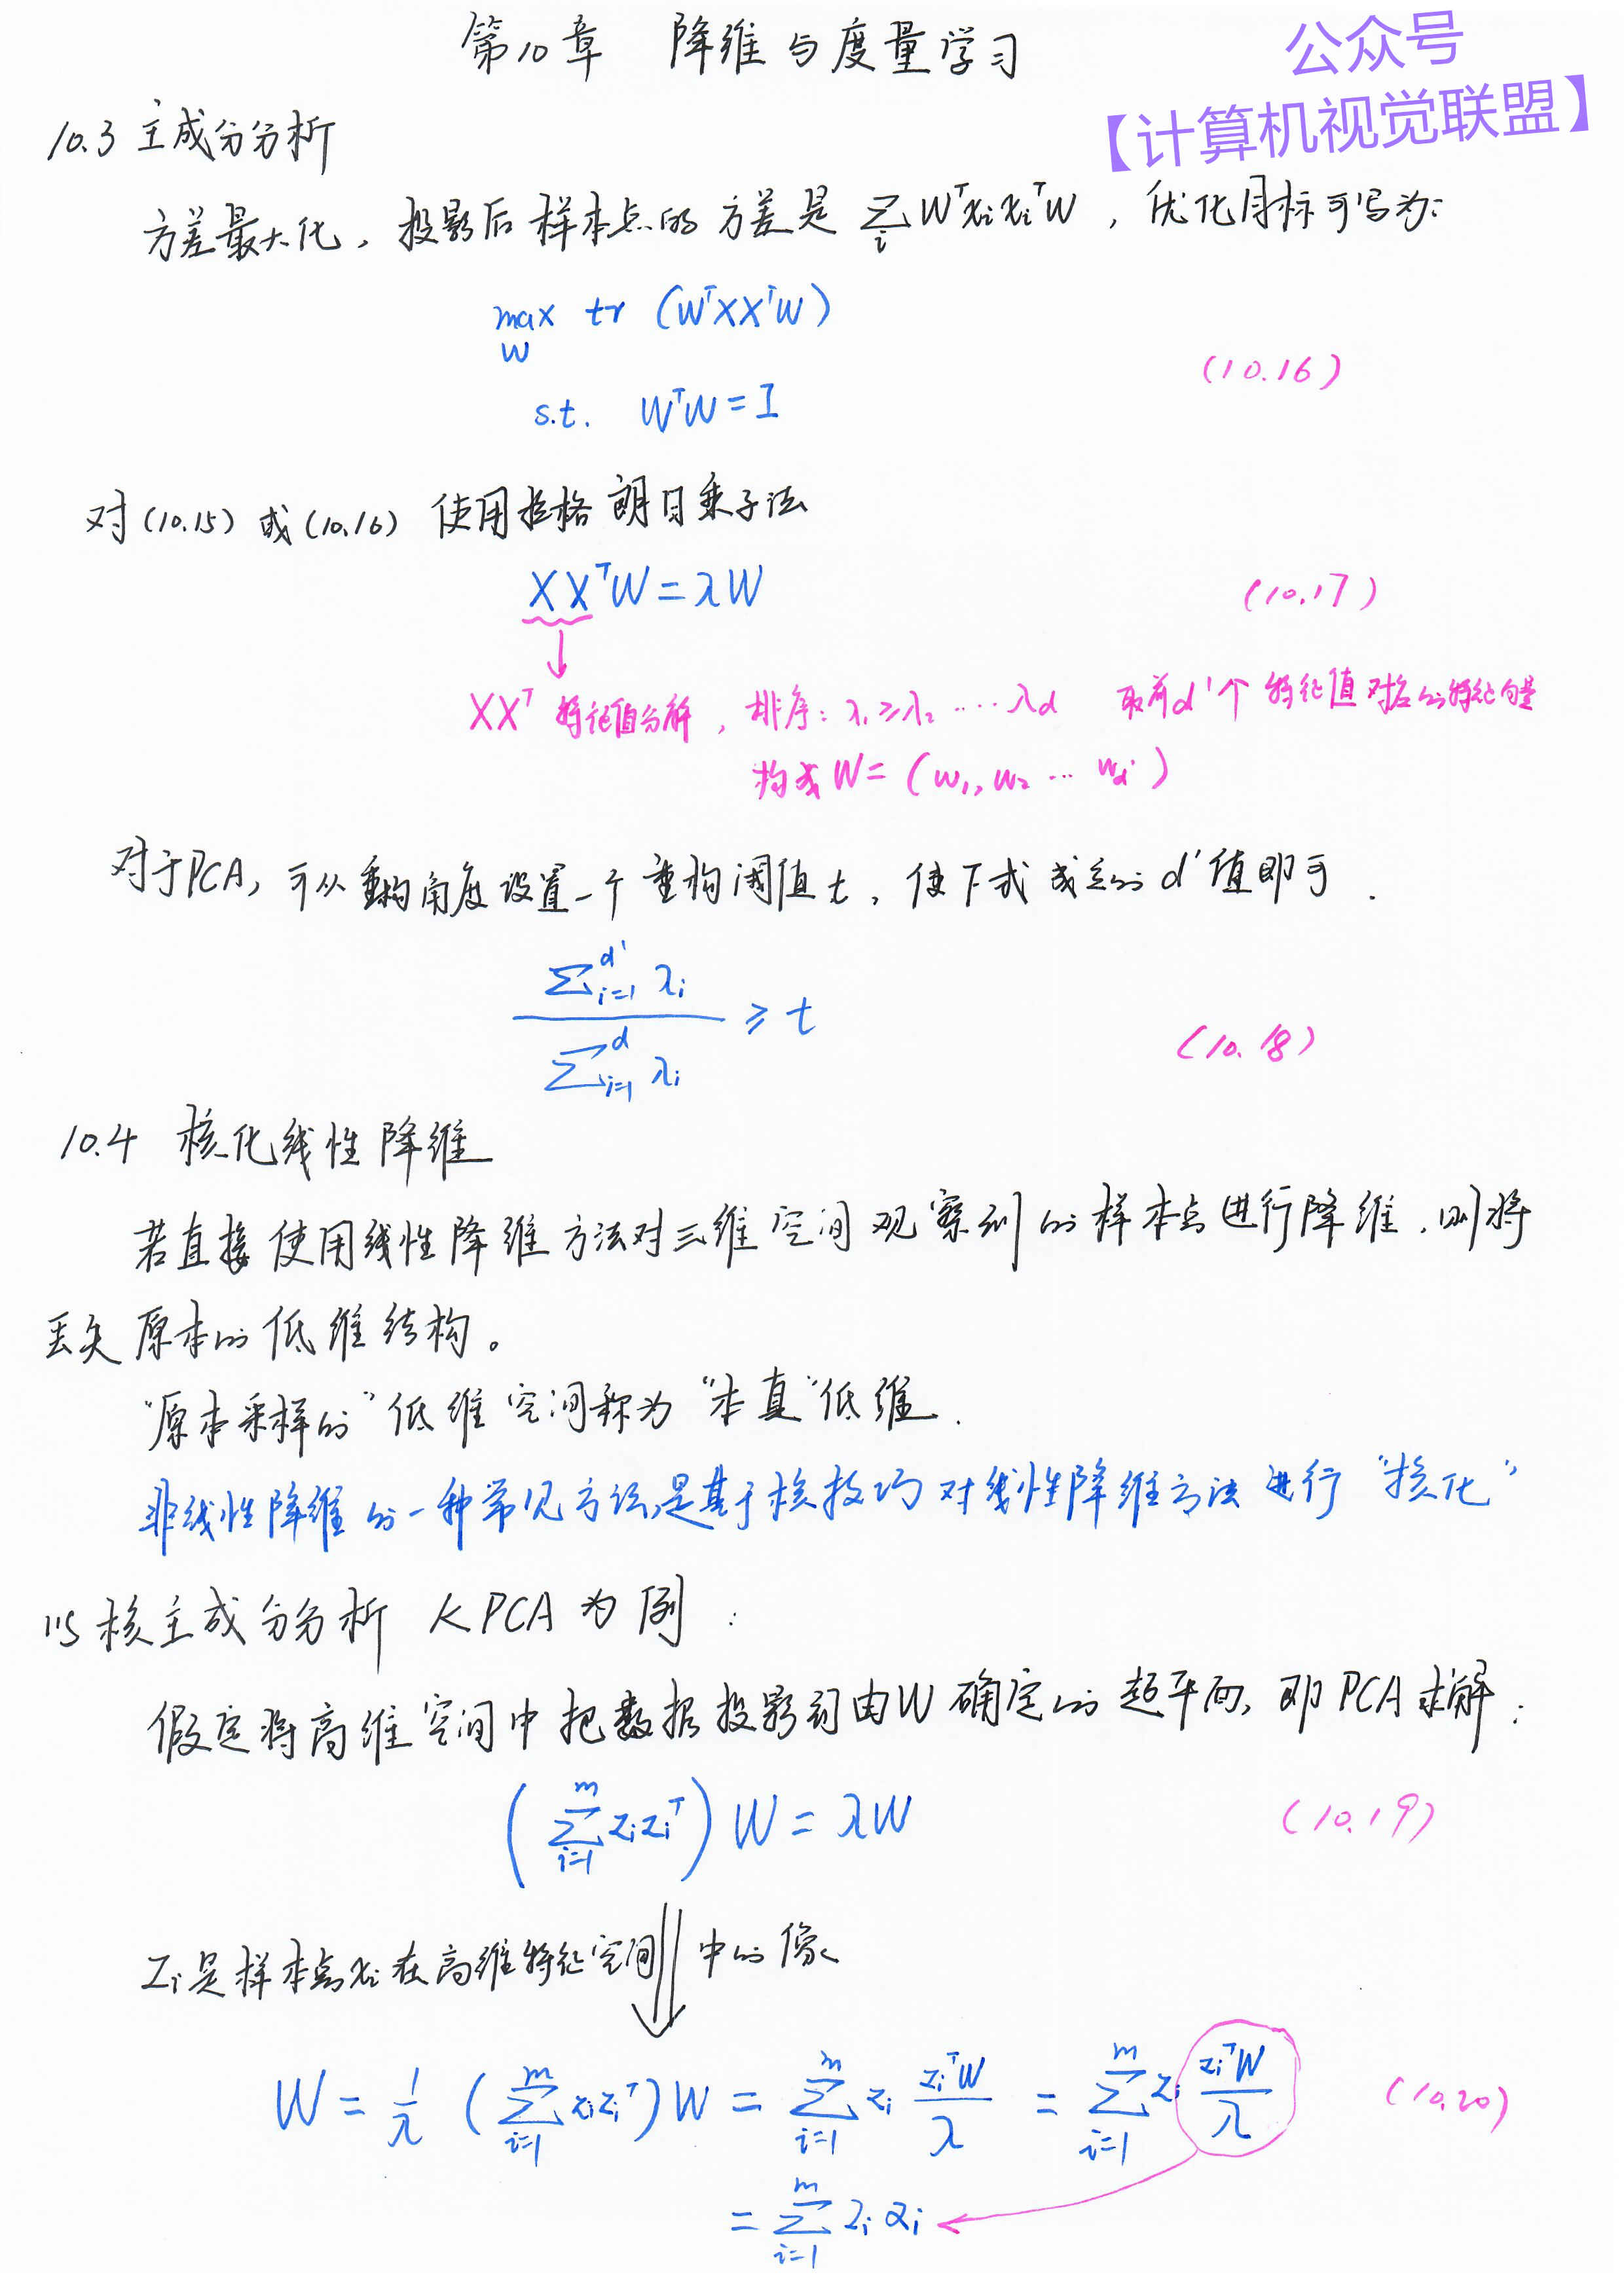 第10章 降维与度量学习
公众号
【计算机视觉联盟】
10.3 主成分分析
方差最大化，投影后样本点的方差是 ∑ᵢ WᵀxᵢxᵢᵀW ，优化目标可写为：
max tr (WᵀXXᵀW)
W
(10.16)
s.t. WᵀW = I
对(10.15) 或(10.16) 使用拉格朗日乘子法
XXᵀW = λW (10.17)
↓
XXᵀ 特征值分解，排序：λ₁ ≥ λ₂ ···· λd 取前d'个特征值对应的特征向量
构成 W = (w₁, w₂ ··· wd')
对于PCA，可从重构角度设置一个重构阈值t，使下式成立的d'值即可.
∑ᵢ₌₁^d' λᵢ / ∑ᵢ₌₁^d λᵢ ≥ t (10.18)
10.4 核化线性降维
若直接使用线性降维方法对三维空间观察到的样本点进行降维，则将
丢失原本的低维结构。
“原本采样的”低维空间称为“本真”低维.
非线性降维的一种常见方法，是基于核技巧对线性降维方法进行“核化”
以核主成分分析 KPCA 为例：
假定将高维空间中把数据投影到由W确定的超平面，即PCA求解：
(∑ᵢ₌₁^m zᵢzᵢᵀ) W = λW (10.19)
Zᵢ是样本点xᵢ在高维特征空间中的像
W = 1/λ (∑ᵢ₌₁^m zᵢzᵢᵀ) W = ∑ᵢ₌₁^m zᵢ zᵢᵀW/λ = ∑ᵢ₌₁^m zᵢ zᵢᵀW/λ (10.20)
= ∑ᵢ₌₁^m zᵢ αᵢ